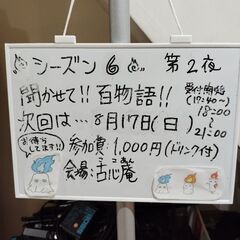 シーズン6 第2夜
聞かせて!!百物語!!
受付開始
(17:40〜)
次回は…8月17日(日)
18:00
〜
21:00
お待ちしてます!!
参加費:1,000円(ドリンク付)
会場:古心庵